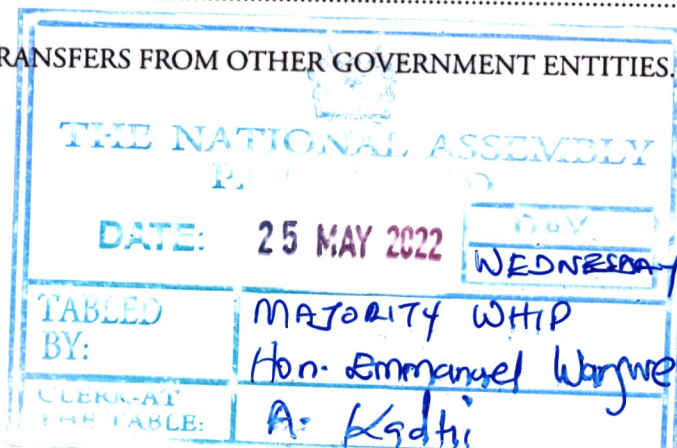 TRANSFERS FROM OTHER GOVERNMENT ENTITIES.
THE NATIONAL ASSEMBLY
DATE: 25 MAY 2022
DAY
WEDNESDAY
TABLED BY:
MAJORITY WHIP
Hon. Emmanuel Wangwe
CLERK-AT THE TABLE:
A. Kadhi